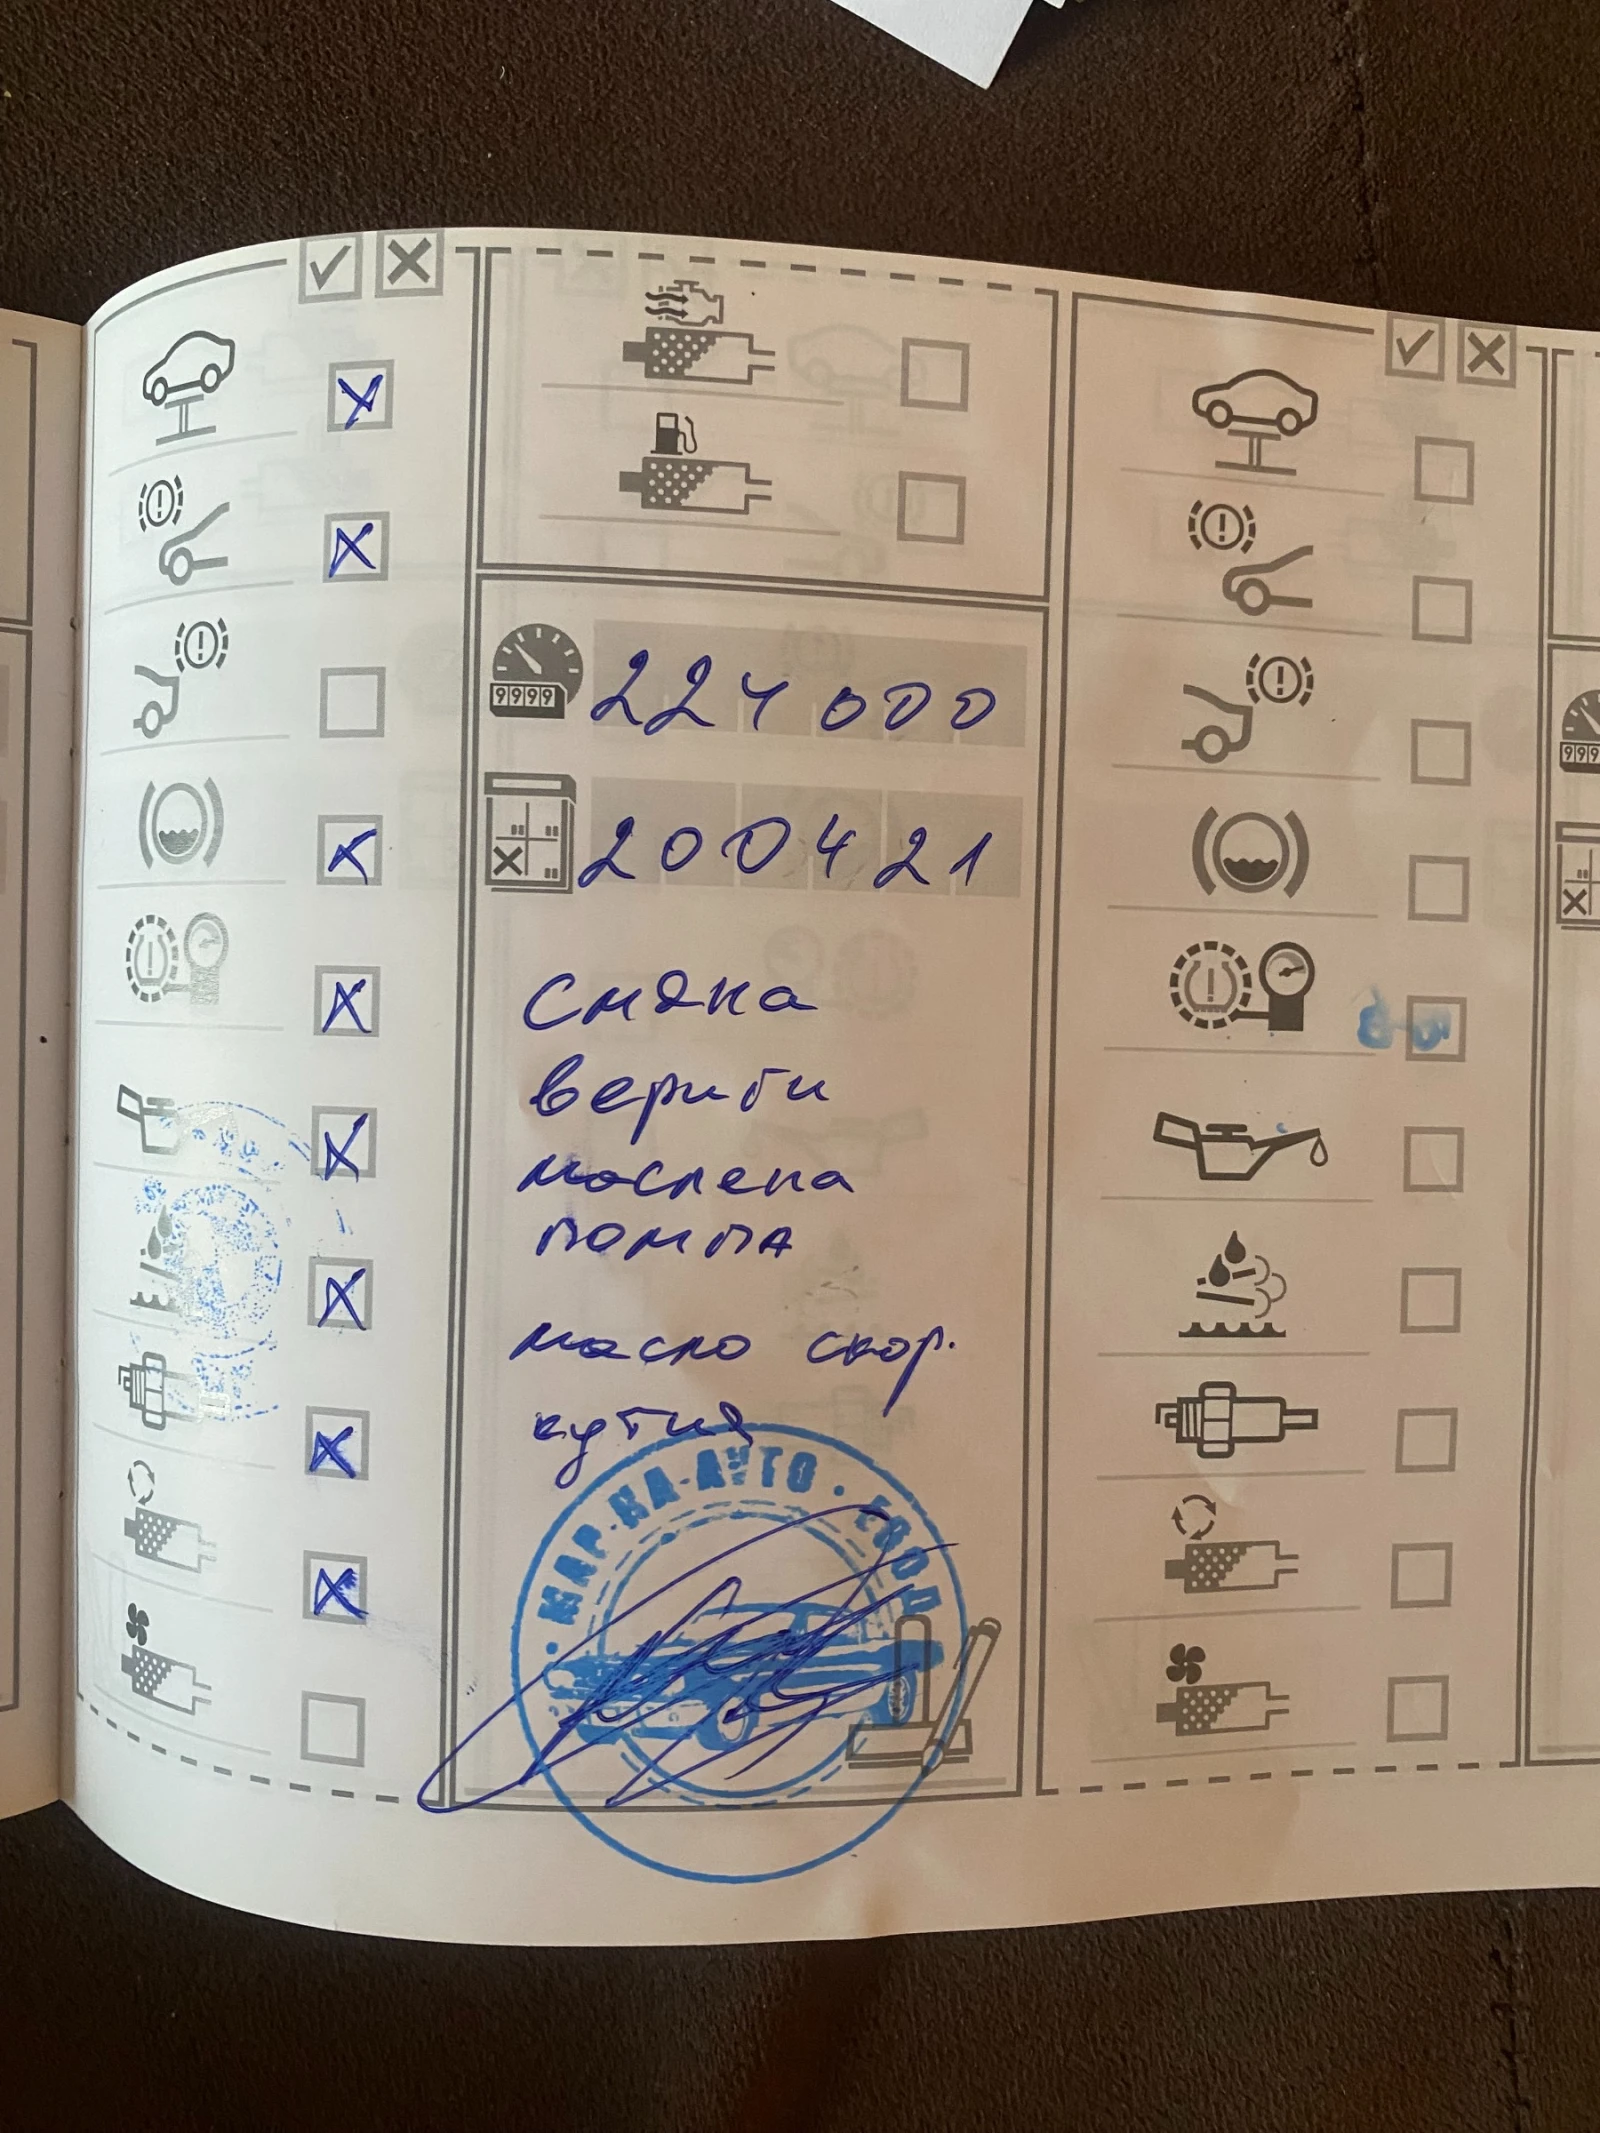 9999
224000
200421
смяна
вериги
маслена
помпа
масло скор.
кутия
МАР-КА-АУТО · ЕООД
999